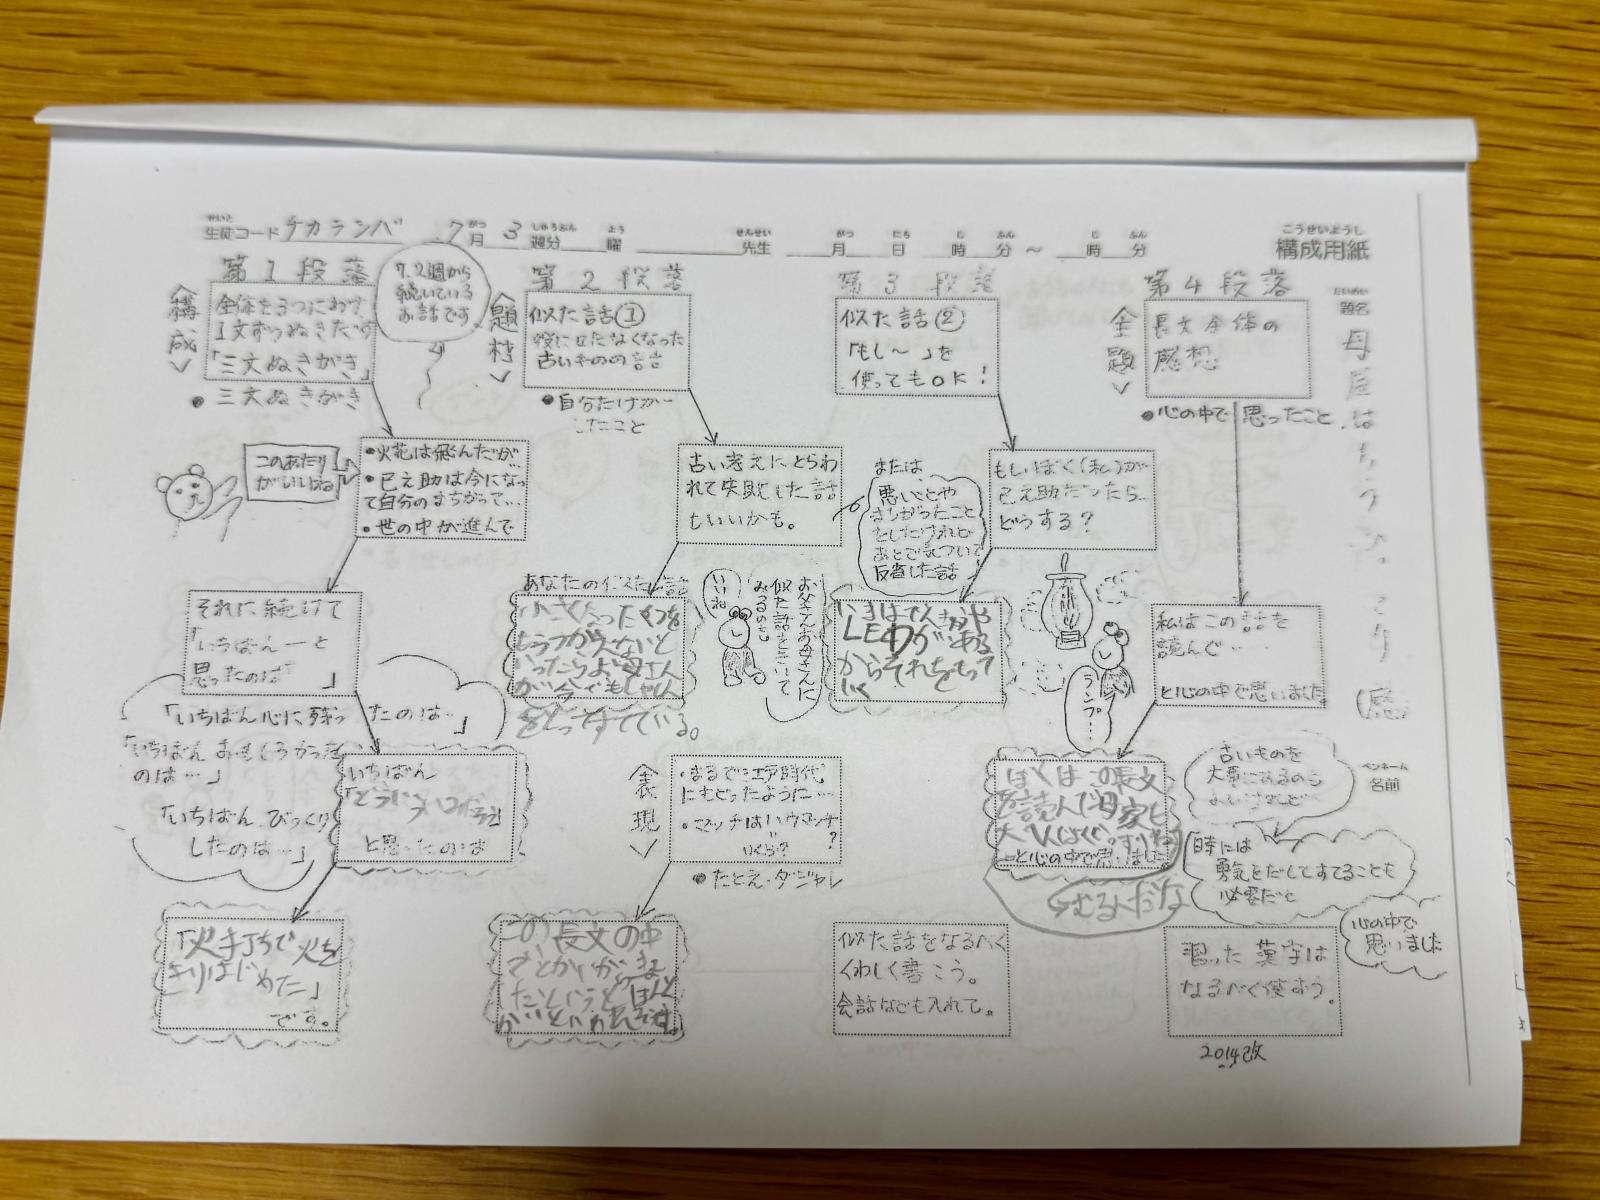 せいと
生徒コード チカランバ 7 月 3 週分 曜 先生 月 日 時 分 ～ 時 分
こうせいようし
構成用紙
第1段落
＜構成＞
全体を3つにわけ
1文ずつぬきだす
「三文ぬきがき」
●三文ぬきがき
7.2週から
続いている
お話です
このあたり
がいいね
●火花は飛んだが…
●巳之助は今になっ
て自分のまちがって…
●世の中が進んで
それに続けて
「いちばん―と
思ったのは 」
「いちばん心に残ったのは…」
「いちばんおもしろかった
のは…」
「いちばんびっくり
したのは…」
いちばん
と思ったのは
「火打ちで火を
きりはじめた」
です。
第2段落
＜題材＞
似た話①
役に立たなくなった
古いものの話
●自分だけが…
したこと
古い考えにとらわ
れて失敗した話
もいいかも。
あなたの似た話
小さくなったくつを
もうつかわないと
いったらお母さん
が今でもしゃしん
をとってすてている。
いいね
お父さんお母さんに
似た話をきいて
みるのも
＜表現＞
・まるで江戸時代
にもどったように…
・マッチはいくら?
●たとえ・ダジャレ
この長文の中
第3段落
似た話②
「もし～」を
使ってもOK!
もしぼく(私)が
巳之助だったら…
どうする?
または、
悪いことや
まちがったこと
をしたけれど
あとで気づいて
反省した話
いまはでんちゅうや
LEDがあある
からそれをもって
いく
ランプ…
似た話をなるべく
くわしく書こう。
会話なども入れて。
第4段落
＜主題＞
長文全体の
感想
●心の中で思ったこと
私はこの話を
読んで…
と心の中で思いました。
ぼくはこの長文
を読んで母家も
―と心の中で思いました。
古いものを
大事にするのも
よいけれど…
時には
勇気をだしてすてることも
必要だと
心の中で
思いました
習った漢字は
なるべく使おう。
2014改
だいめい
題名
母屋はもうひっこり (感)
ペンネーム
名前